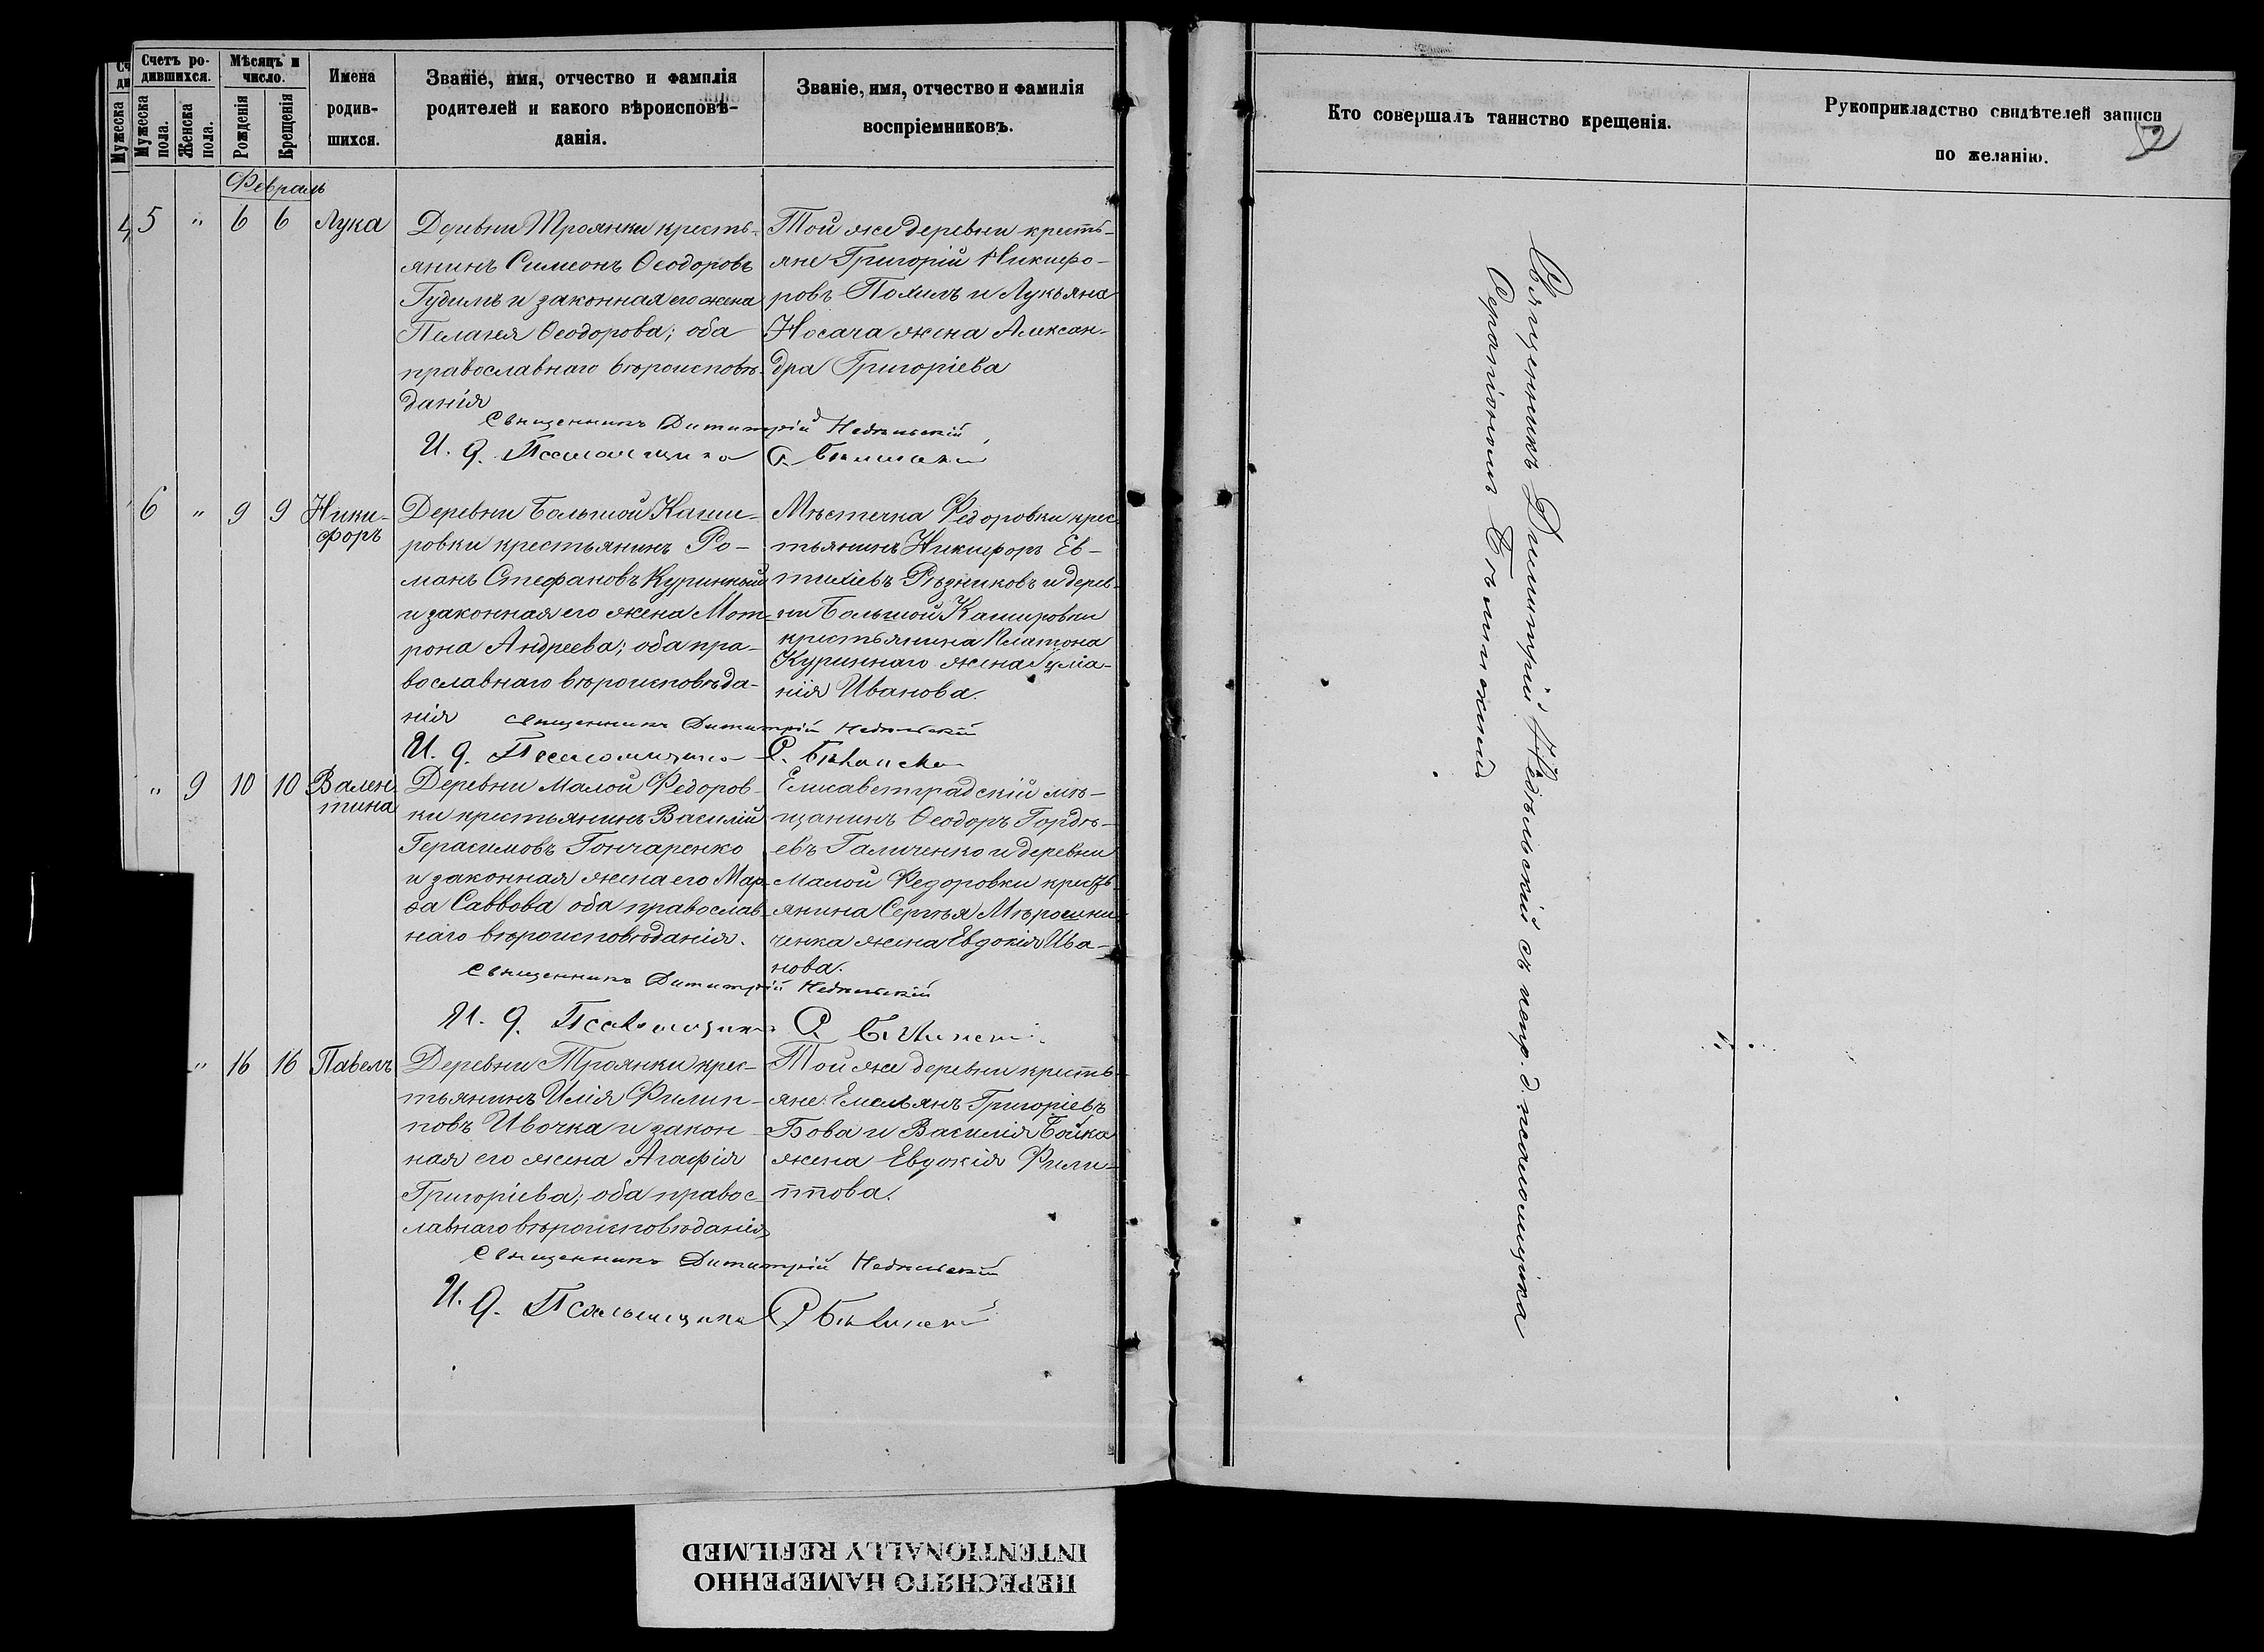 Счетъ ро-
дившихся.
Мѣсяцъ и
число.
Имена
родив-
шихся.
Званіе, имя, отчество и фамилія
родителей и какого вѣроисповѣ-
данія.
Званіе, имя, отчество и фамилія
воспріемниковъ.
Мужеска
Мужеска
пола.
Женска
пола.
Рожденія
Крещенія
Февраль
5 " 6 6 Лука
Деревни Троянки кресть-
янинъ Симеонъ Ѳеодоровъ
Гудимъ и законная его жена
Пелагея Ѳеодорова; оба
православнаго вѣроисповѣ-
данія
Той же деревни кресть-
яне Григорій Никифо-
ровъ Похилъ и Лукьяна
Носача жена Алексан-
дра Григоріева
Священникъ Димитрій Недѣльскій
И. д. Псаломщика С. Бѣлинскій
6 " 9 9 Ники-
форъ
Деревни Большой Каши-
ровки крестьянинъ Ро-
манъ Стефановъ Куринный
и законная его жена Мот-
рона Андреева; оба пра-
вославнаго вѣроисповѣда-
нія
Мѣстечка Федоровки крес-
тьянинъ Никифоръ Ев-
тихіевъ Рѣзниковъ и дерев-
ни Большой Кашировки
крестьянина Платона
Куриннаго жена Уліа-
нія Иванова.
Священникъ Димитрій Недѣльскій
И. д. Псаломщика С. Бѣлинскій
" 9 10 10 Вален-
тина
Деревни Малой Федоров-
ки крестьянинъ Василій
Герасимовъ Гончаренко
и законная жена его Мар-
ѳа Саввова оба православ-
наго вѣроисповѣданія.
Елисаветградскій мѣ-
щанинъ Ѳеодоръ Гордѣ-
евъ Галиченко и деревни
Малой Федоровки кресть-
янина Сергѣя Мѣрошни-
ченка жена Евдокія Ива-
нова.
Священникъ Димитрій Недѣльскій
И. д. Псаломщика С. Бѣлинскій
" 16 16 Павелъ
Деревни Троянки крес-
тьянинъ Илія Филип-
повъ Ивочка и закон-
ная его жена Агафія
Григоріева; оба правос-
лавнаго вѣроисповѣданія
Той же деревни кресть-
яне: Емельянъ Григоріевъ
Бова и Василія Бойка
жена Евдокія Фили-
ппова.
Священникъ Димитрій Недѣльскій
И. д. Псаломщика С. Бѣлинскій
Кто совершалъ таинство крещенія.
Рукоприкладство свидѣтелей записи
по желанію.
Священникъ Димитрій Недѣльскій съ испр. д. псаломщика
Серапіономъ Бѣлинскимъ
ПЕРЕСНЯТО НАМЕРЕННО
INTENTIONALLY REFILMED